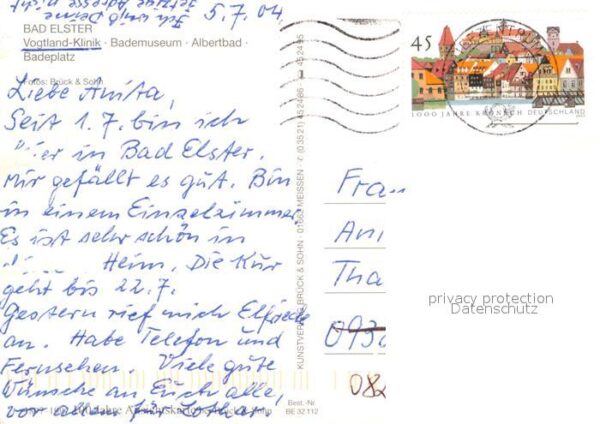 5.7.04
BAD ELSTER
Vogtland-Klinik · Bademuseum · Albertbad ·
Badeplatz
Fotos: Brück & Sohn
Liebe Anita,
Seit 1.7. bin ich
in Bad Elster.
Mir gefällt es gut. Bin
in einem Einzelzimmer
Es ist sehr schön in
Heim. Die Kur
geht bis 22.7.
Gestern rief mich Elfriede
an. Habe Telefon und
Fernsehen. Viele gute
Wünsche an Euch alle,
vor allem für Lothar.
Best.-Nr.
BE 32 112
KUNSTVERLAG BRÜCK & SOHN · 01662 MEISSEN · (03521) 452486 · 452495
45
1000 JAHRE KRONACH DEUTSCHLAND
Frau
Ani
Tha
093
082
privacy protection
Datenschutz